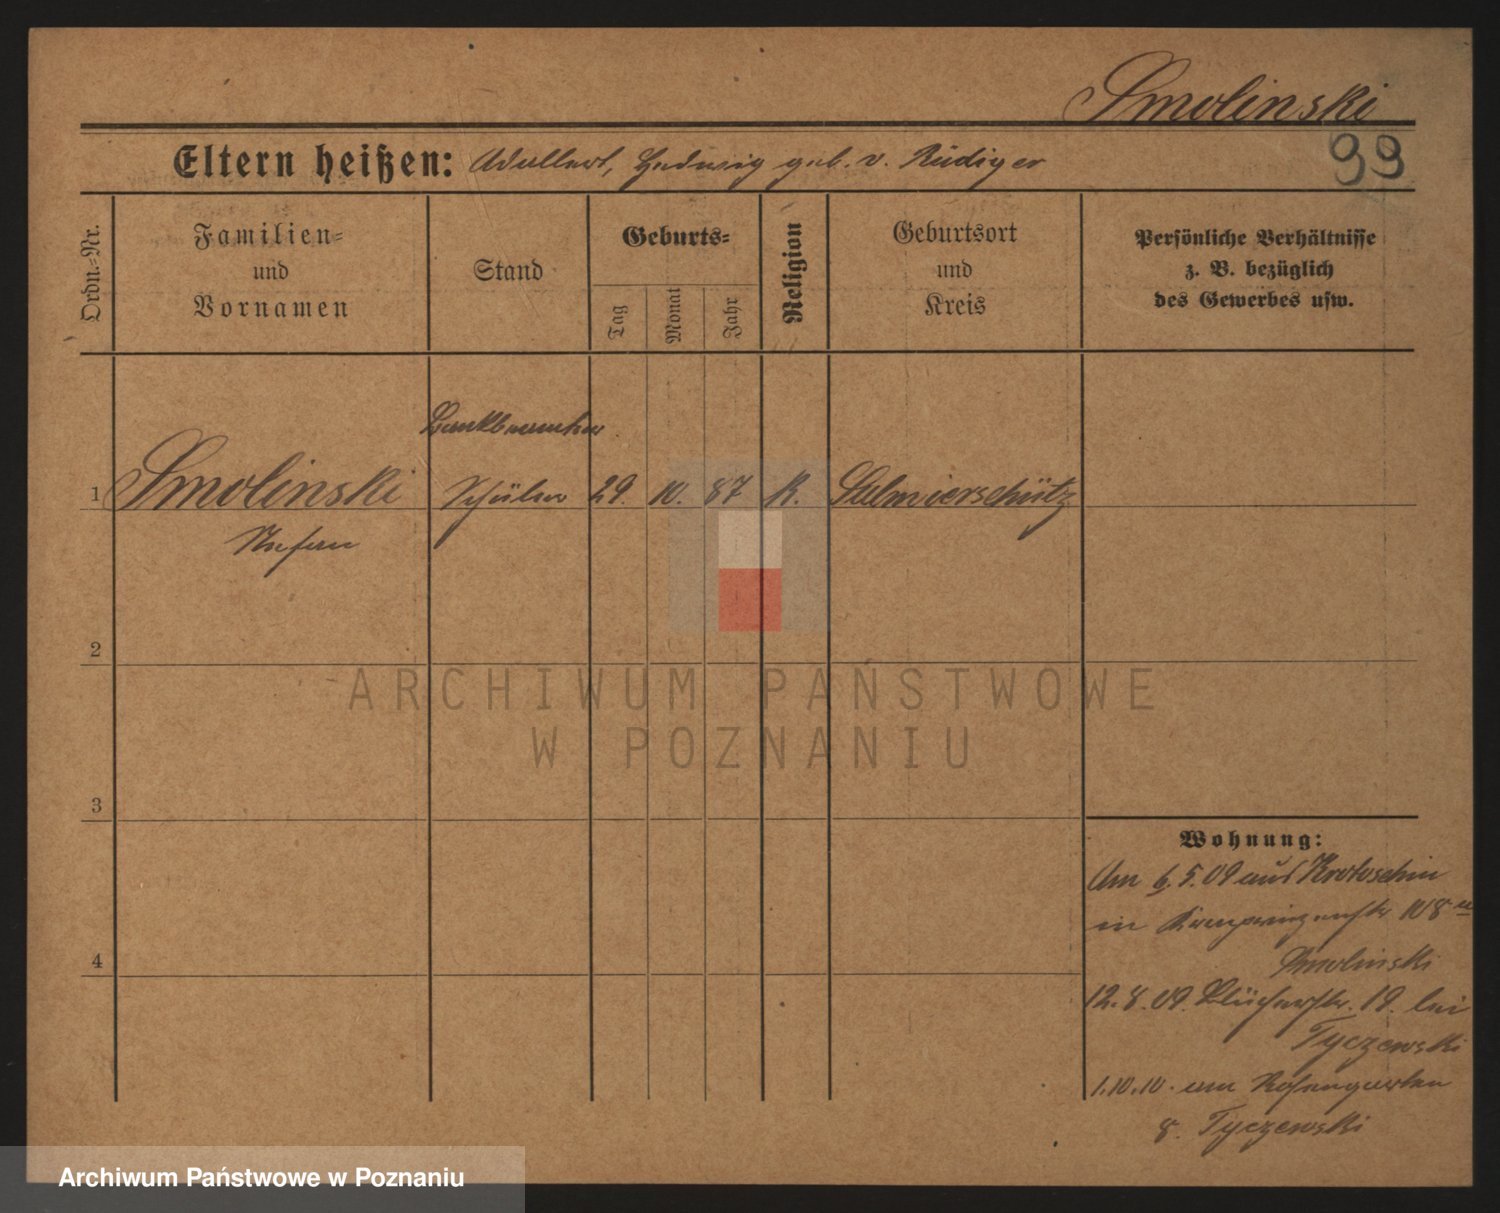 Smolinski
Eltern heißen: Adalbert, Hedwig geb. v. Rüdiger
99
Ordn.-Nr.
Familien-
und
Vornamen
Stand
Geburts-
Tag
Monat
Jahr
Religion
Geburtsort
und
Kreis
Persönliche Verhältnisse
z. B. bezüglich
des Gewerbes usw.
Bankbeamter
1 Smolinski Schüler 29. 10. 87 K. Salmierschütz
Stefan
2
ARCHIWUM PAŃSTWOWE
W POZNANIU
3
4
Wohnung:
Am 6.5.09 aus Krotoschin
in 108
Smolinski
12.8.09. Blücherstr. 19. bei
Tyczewski
1.10.10. am Rosengarten
8. Tyczewski
Archiwum Państwowe w Poznaniu